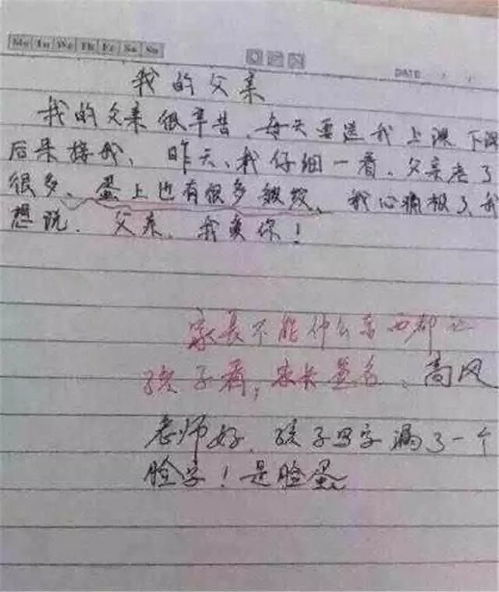 Mo Tu We Th Fr Sa Su
DATE / /
我的父亲
我的父亲很辛苦、每天要送我上课、下课
后来接我、昨天、我仔细一看、父亲老了
很多、蛋上也有很多皱纹、我心痛极了、我
想说、父亲、我爱你！
家长不能什么东西都让
孩子看，家长签名、高风
老师好、孩子写字漏了一个
脸字！是脸蛋